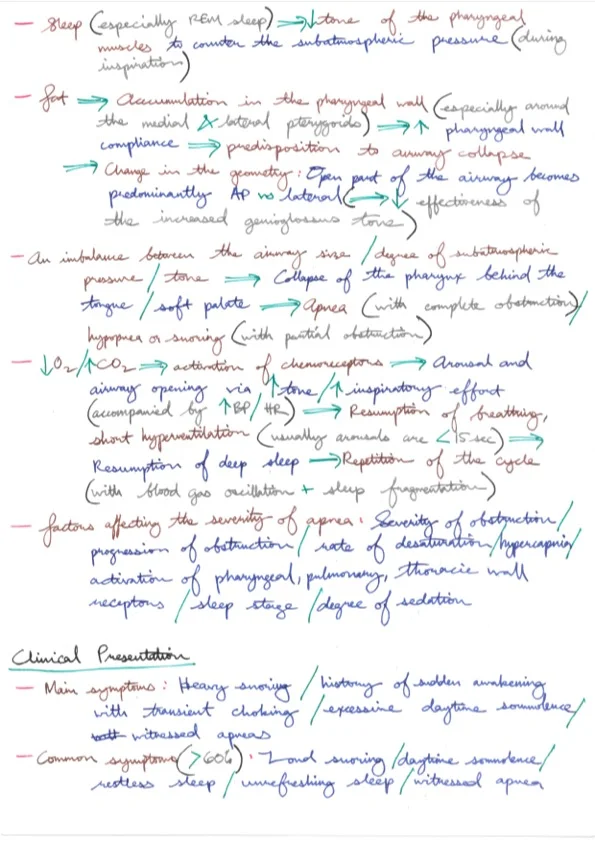 — Sleep (especially REM sleep) → ↓ tone of the pharyngeal
muscles to counter the subatmospheric pressure (during
inspiration)
— Fat → Accumulation in the pharyngeal wall (especially around
the medial & lateral pterygoids) → ↑ pharyngeal wall
compliance → predisposition to airway collapse
→ Change in the geometry: Open part of the airway becomes
predominantly AP vs lateral (→ ↓ effectiveness of
the increased genioglossus tone)
— An imbalance between the airway size / degree of subatmospheric
pressure / tone → Collapse of the pharynx behind the
tongue / soft palate → Apnea (with complete obstruction) /
hypopnea or snoring (with partial obstruction)
— ↓O2/↑CO2 → activation of chemoreceptors → Arousal and
airway opening via ↑tone/↑inspiratory effort
(accompanied by ↑BP/HR) → Resumption of breathing,
short hyperventilation (usually arousals are <15 sec) →
Resumption of deep sleep → Repetition of the cycle
(with blood gas oscillation + sleep fragmentation)
— Factors affecting the severity of apnea: Severity of obstruction/
progression of obstruction/ rate of desaturation/hypercapnia/
activation of pharyngeal, pulmonary, thoracic wall
receptors / sleep stage / degree of sedation
Clinical Presentation
— Main symptoms: Heavy snoring / history of sudden awakening
with transient choking / excessive daytime somnolence/
witnessed apneas
— Common symptoms (>60%): Loud snoring /daytime somnolence/
restless sleep / unrefreshing sleep / witnessed apnea